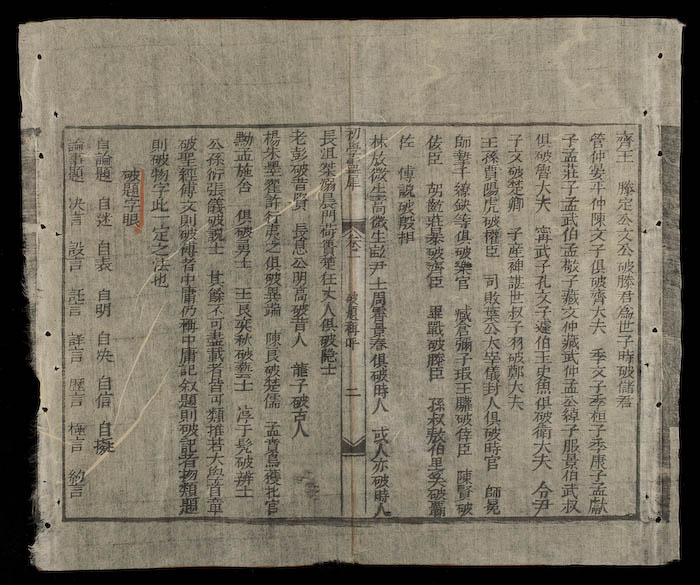 齊王　滕定公文公破滕君爲世子時破儲君
管仲晏平仲陳文子俱破齊大夫　季文子季桓子季康子孟獻
子孟莊子孟武伯孟敬子臧文仲臧武仲孟公綽子服景伯武叔
俱破魯大夫　甯武子孔文子蘧伯玉史魚俱破衛大夫　令尹
子文破楚卿　子產裨諶世叔子羽破鄭大夫
王孫賈陽虎破權臣　司敗葉公太宰儀封人俱破時官　師冕
師摯干繚缺等俱破樂官　臧倉彌子瑕王驩破倖臣　陳賢破
佞臣　胡齕莊暴破齊臣　畢戰破滕臣　孫叔敖百里奚破霸
佐　傅說破殷相
林放微生高微生畝尹士周霄景春俱破時人　或人亦破時人
初學　卷二　破題稱呼　二
長沮桀溺晨門荷蕢楚狂丈人俱破隱士
老彭破昔賢　長息公明高破昔人　龍子破古人
楊朱墨翟許行夷之俱破異端　陳良破楚儒　孟賁烏獲北宮
黝孟施舍　俱破勇士　王良奕秋破藝士　淳于髡破辨士
公孫衍張儀破說士　其餘不可盡載者皆可類推若大學首章
破聖經傳文則破傳者中庸仍稱中庸記叙題則破記者物類題
則破物字此一定之法也
破題字眼
自論題　自述　自表　自明　自夬　自信　自擬
論事題　決言　設言　託言　詳言　歷言　極言　約言